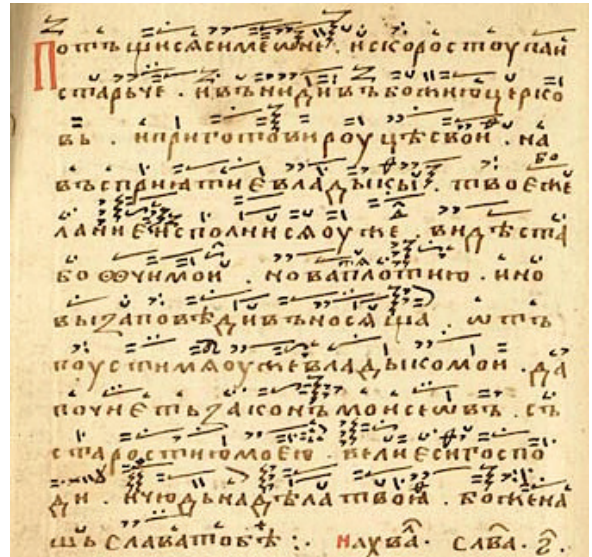 Потъщисѧсимеѡне · искоростоупаи
старьче · ивънидивъбожиюцерко
вь · иприготовироуцѣсвои · на
въсприятиєвладыкы · твоєже
ланиєисполнисѧоуже · видѣста
боѻчимои · новаплотию · ино
выꙁаповѣдивъносѧща · ѡтъ
поустимѧоужевладыкомои · да
почиєтьꙁаконъмоисеѡвъ · съ
старостиюмоєю · велиєсигоспо
ди · ичюдьнадѣлатвоꙗ · боженa
шьславатобѣ :·